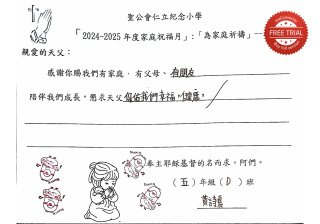 聖公會仁立紀念小學
「2024-2025 年度家庭祝福月」：「為家庭祈禱」
FREE TRIAL
親愛的天父：
感謝你賜我們有家庭，有父母、有朋友
陪伴我們成長。懇求天父保佑我們幸福，健康。
奉主耶穌基督的名而求，阿們。
（五）年級（D）班